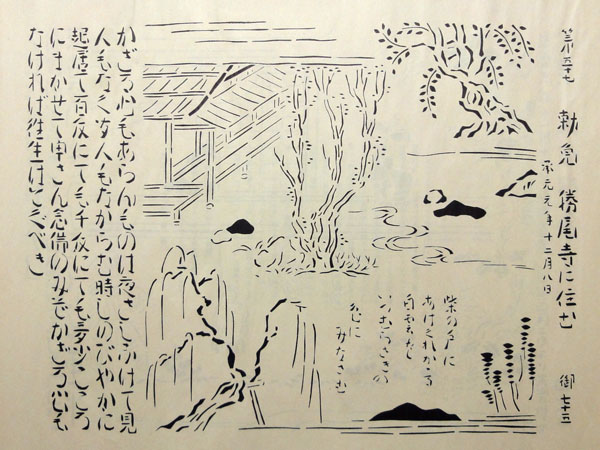 第五十七 勅免 勝尾寺に住む 御七十五
承元元年十二月八日
柴の戸に
あけくれかゝる
いつむらさきの
色に
みなさむ
かざる心もあらんものは夜さしふけて見
人もなく聞人もなからむ時しのびやかに
起居て百反にても千反にても多少こころ
にまかせて申さん念佛のみぞかざる心も
なければ往生はとぐべき